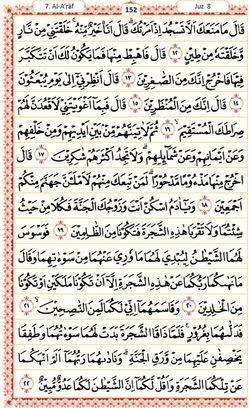 7. Al-A'râf 152 Juz 8
قَالَ مَا مَنَعَكَ أَلَّا تَسْجُدَ إِذْ أَمَرْتُكَ ۖ قَالَ أَنَا۠ خَيْرٌ مِّنْهُ ۚ خَلَقْتَنِى مِن نَّارٍ
وَخَلَقْتَهُۥ مِن طِينٍ ١٢ قَالَ فَٱهْبِطْ مِنْهَا فَمَا يَكُونُ لَكَ أَن تَتَكَبَّرَ
فِيهَا فَٱخْرُجْ إِنَّكَ مِنَ ٱلصَّٰغِرِينَ ١٣ قَالَ أَنظِرْنِىٓ إِلَىٰ يَوْمِ يُبْعَثُونَ
١٤ قَالَ إِنَّكَ مِنَ ٱلْمُنظَرِينَ ١٥ قَالَ فَبِمَآ أَغْوَيْتَنِى لَأَقْعُدَنَّ لَهُمْ
صِرَٰطَكَ ٱلْمُسْتَقِيمَ ١٦ ثُمَّ لَءَاتِيَنَّهُم مِّنۢ بَيْنِ أَيْدِيهِمْ وَمِنْ خَلْفِهِمْ
وَعَنْ أَيْمَٰنِهِمْ وَعَن شَمَآئِلِهِمْ ۖ وَلَا تَجِدُ أَكْثَرَهُمْ شَٰكِرِينَ ١٧ قَالَ
ٱخْرُجْ مِنْهَا مَذْءُومًا مَّدْحُورًا ۖ لَّمَن تَبِعَكَ مِنْهُمْ لَأَمْلَأَنَّ جَهَنَّمَ مِنكُمْ
أَجْمَعِينَ ١٨ وَيَٰٓـَٔادَمُ ٱسْكُنْ أَنتَ وَزَوْجُكَ ٱلْجَنَّةَ فَكُلَا مِنْ حَيْثُ
شِئْتُمَا وَلَا تَقْرَبَا هَٰذِهِ ٱلشَّجَرَةَ فَتَكُونَا مِنَ ٱلظَّٰلِمِينَ ١٩ فَوَسْوَسَ
لَهُمَا ٱلشَّيْطَٰنُ لِيُبْدِىَ لَهُمَا مَا وُۥرِىَ عَنْهُمَا مِن سَوْءَٰتِهِمَا وَقَالَ
مَا نَهَىٰكُمَا رَبُّكُمَا عَنْ هَٰذِهِ ٱلشَّجَرَةِ إِلَّآ أَن تَكُونَا مَلَكَيْنِ أَوْ تَكُونَا
مِنَ ٱلْخَٰلِدِينَ ٢٠ وَقَاسَمَهُمَآ إِنِّى لَكُمَا لَمِنَ ٱلنَّٰصِحِينَ ٢١
فَدَلَّىٰهُمَا بِغُرُورٍ ۚ فَلَمَّا ذَاقَا ٱلشَّجَرَةَ بَدَتْ لَهُمَا سَوْءَٰتُهُمَا وَطَفِقَا
يَخْصِفَانِ عَلَيْهِمَا مِن وَرَقِ ٱلْجَنَّةِ ۖ وَنَادَىٰهُمَا رَبُّهُمَآ أَلَمْ أَنْهَكُمَا
عَن تِلْكُمَا ٱلشَّجَرَةِ وَأَقُل لَّكُمَآ إِنَّ ٱلشَّيْطَٰنَ لَكُمَا عَدُوٌّ مُّبِينٌ ٢٢